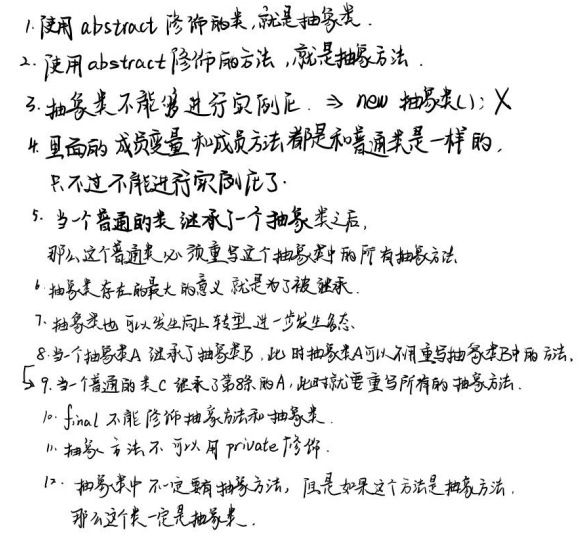 1. 使用 abstract 修饰的类,就是抽象类.
2. 使用 abstract 修饰的方法,就是抽象方法.
3. 抽象类不能够进行实例化. ⇒ new 抽象类(); X
4. 里面的成员变量和成员方法都是和普通类是一样的,
只不过不能进行实例化了.
5. 当一个普通的类继承了一个抽象类之后,
那么这个普通类必须重写这个抽象类中的所有抽象方法.
6. 抽象类存在的最大的意义就是为了被继承.
7. 抽象类也可以发生向上转型,进一步发生多态.
8. 当一个抽象类A 继承了抽象类B,此时抽象类A可以不用重写抽象类B中的方法.
9. 当一个普通的类C继承了第8条的A,此时就要重写所有的抽象方法.
10. final 不能修饰抽象方法和抽象类.
11. 抽象方法不可以用 private 修饰.
12. 抽象类中不一定要有抽象方法,但是如果这个方法是抽象方法.
那么这个类一定是抽象类.